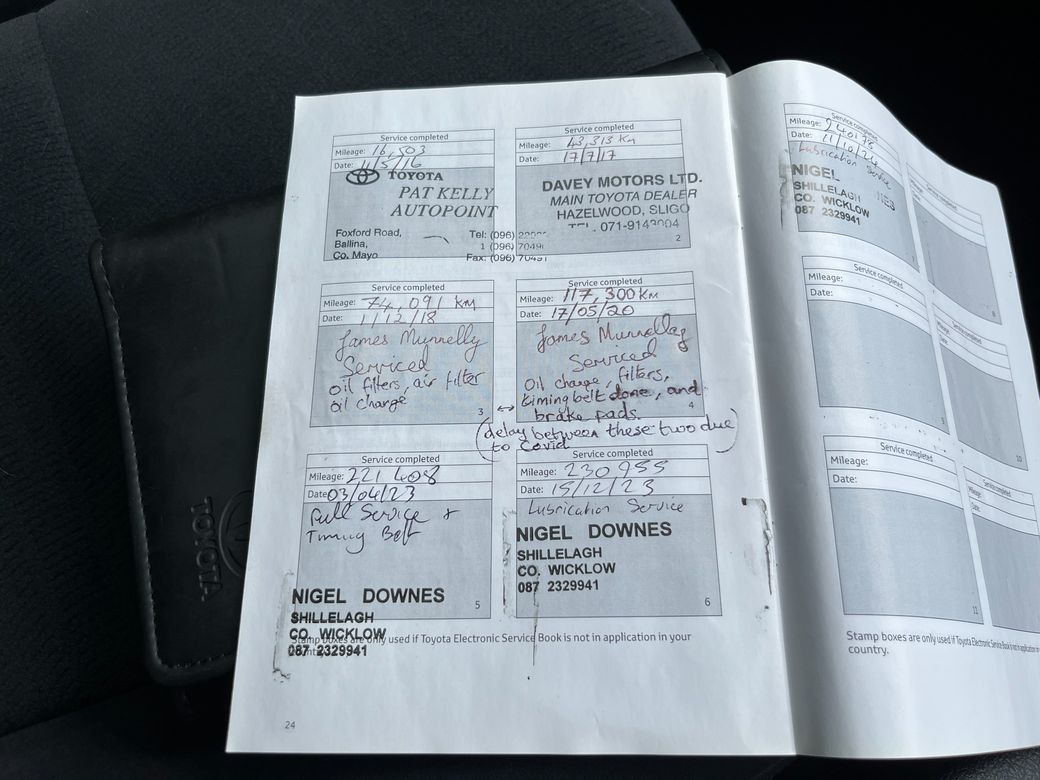 Service completed
Mileage: 16,503
Date: 4/5/16
TOYOTA
PAT KELLY
AUTOPOINT
Foxford Road,
Ballina,
Co. Mayo
Tel: (096)
1 (096)
Fax: (096)
Service completed
Mileage: 43,313 Km
Date: 17/7/17
DAVEY MOTORS LTD.
MAIN TOYOTA DEALER
HAZELWOOD, SLIGO
TEL. 071-
2
Service completed
Mileage: 74,091 km
Date: 11/12/18
James Munnelly
Serviced
oil filters, air filter
oil change
3
Service completed
Mileage: 117,300 Km
Date: 17/05/20
James Munnelly
Serviced
Oil change, filters,
timing belt done, and
brake pads.
4
(delay between these two due
to Covid)
Service completed
Mileage: 221 408
Date: 03/04/23
Full Service +
Timing Belt
5
NIGEL DOWNES
SHILLELAGH
CO. WICKLOW
087 2329941
Service completed
Mileage: 230 955
Date: 15/12/23
Lubrication Service
NIGEL DOWNES
SHILLELAGH
CO. WICKLOW
087 2329941
6
Stamp boxes are only used if Toyota Electronic Service Book is not in application in your
24
Service completed
Mileage: 240175
Date: 11/10/24
Lubrication Service
NIGEL
SHILLELAGH
CO. WICKLOW
087 2329941
Service completed
Service completed
Mileage:
Date:
Service completed
10
Service completed
Mileage:
Date:
11
Service completed
Mileage:
Date:
Stamp boxes are only used if Toyota Electronic Service Book is not in application in
country.
TOYOTA